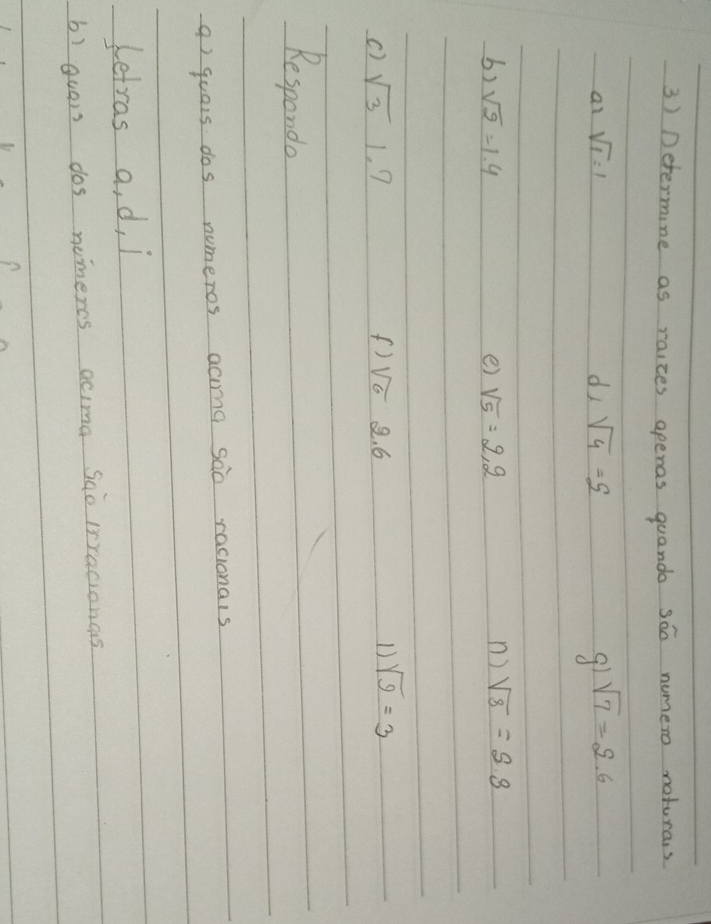 3) Determine as raizes apenas quando são numero naturais.
a) √1=1 d) √4 =2 g) √7=2.6
b) √2=1.4 e) √5=2,2 n) √8 = 2.8
c) √3 1.7 f) √6 2.6 i) √9=3
Responda
a) quais dos numeros acima são racionais
Letras a, d, i
b) quais dos números acima são irracionais